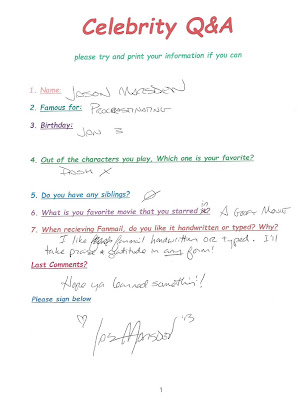 Celebrity Q&A
please try and print your information if you can
1. Name: JASON MARSDEN
2. Famous for: PROCRASTINATING
3. Birthday: JAN 3
4. Out of the characters you play, Which one is your favorite?
DASH X
5. Do you have any siblings? Ø
6. What is you favorite movie that you starred in? A GOOFY MOVIE
7. When recieving Fanmail, do you like it handwritten or typed? Why?
I like fanmail handwritten or typed. I'll
take praise & gratitude in any form!
Last Comments?
Hope ya learned somethin'!
Please sign below
Jason Marsden '13
1